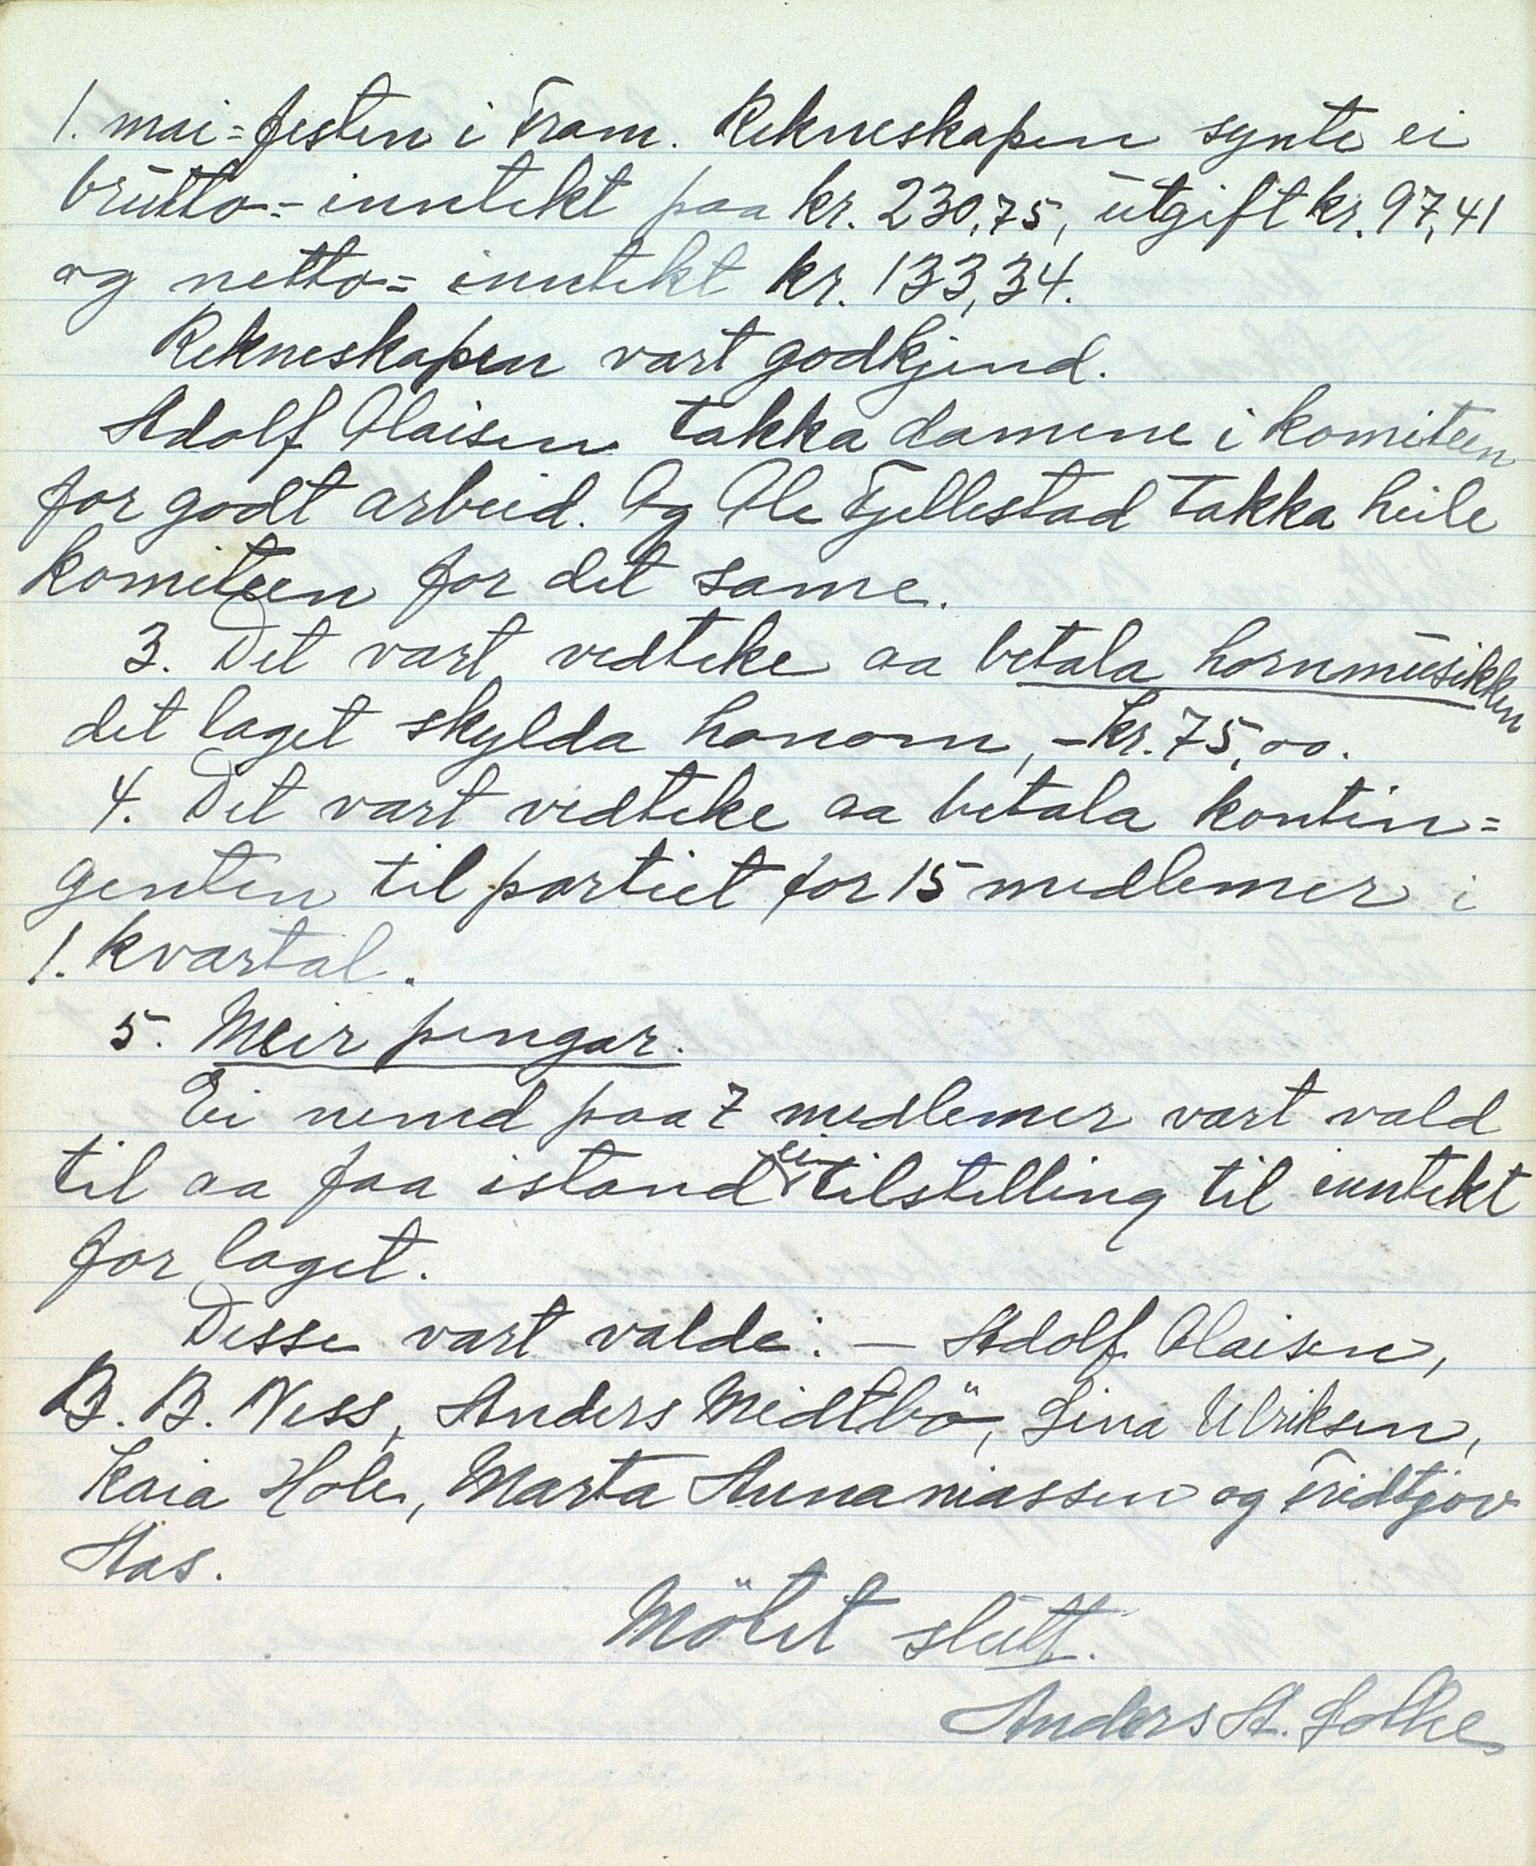 1. mai-festen i Fram. Rekneskapen synte ei
brutto=inntekt paa kr. 230,75, utgift kr. 97,41
og netto=inntekt kr. 133,34.
Rekneskapen vart godkjend.
Adolf Olaisen takka damene i komiteen
for godt arbeid. Og Ole Fjellestad takka heile
komiteen for det same.
3. Det vart vedteke aa betala hornmusikken
det laget skylda honom, - kr. 75,00.
4. Det vart vedteke aa betala kontin=
genten til partiet for 15 medlemer i
1. kvartal.
5. Meir pengar.
Ei nemd paa 7 medlemer vart vald
til aa faa istand ei tilstelling til inntekt
for laget.
Desse vart valde: - Adolf Olaisen,
B. B. Ness, Anders Midtbö, Lina Ulriksen,
Kaia Hole, Marta Annaniassen og Fridtjov
Aas.
Mötet slutt.
Anders A. Solhe